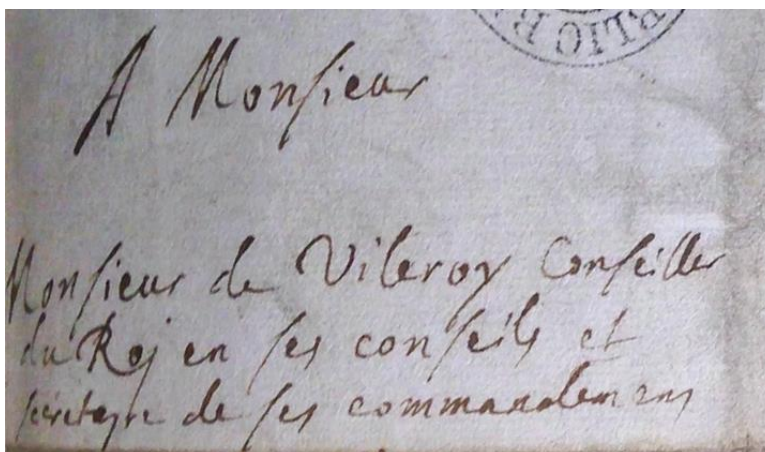 PUBLIC R
A Monsieur
Monsieur de Vileroy Conseiller
du Roj en ses conseils et
secretayre de ses commandemens